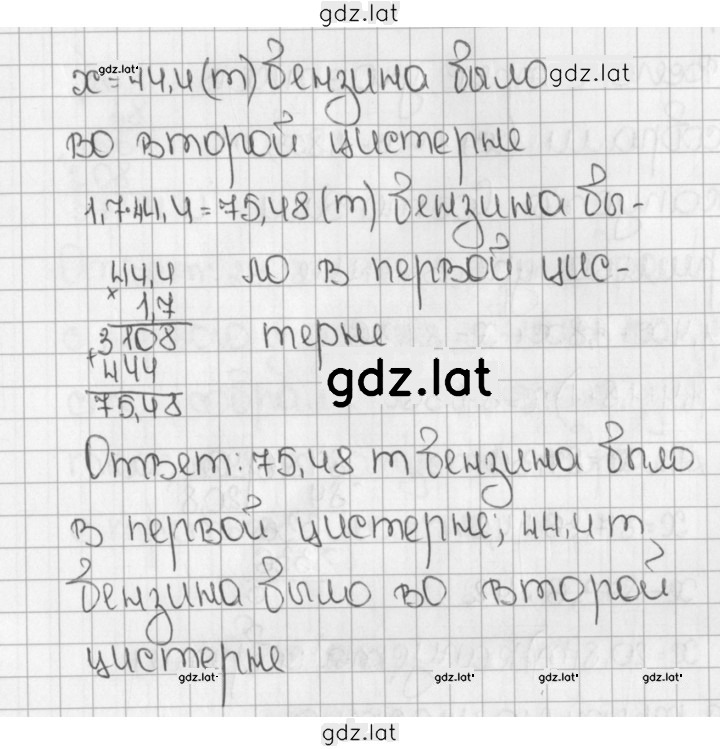 gdz.lat
gdz.lat
x = 44,4 (т) бензина было gdz.lat
во второй цистерне
1,7·44,4 = 75,48 (т) бензина бы-
44,4 ло в первой цис-
× 1,7
3108 терне
+ 444
gdz.lat
75,48
Ответ: 75,48 т бензина было
в первой цистерне; 44,4 т
бензина было во второй
цистерне
gdz.lat gdz.lat gdz.lat gdz.lat
gdz.lat